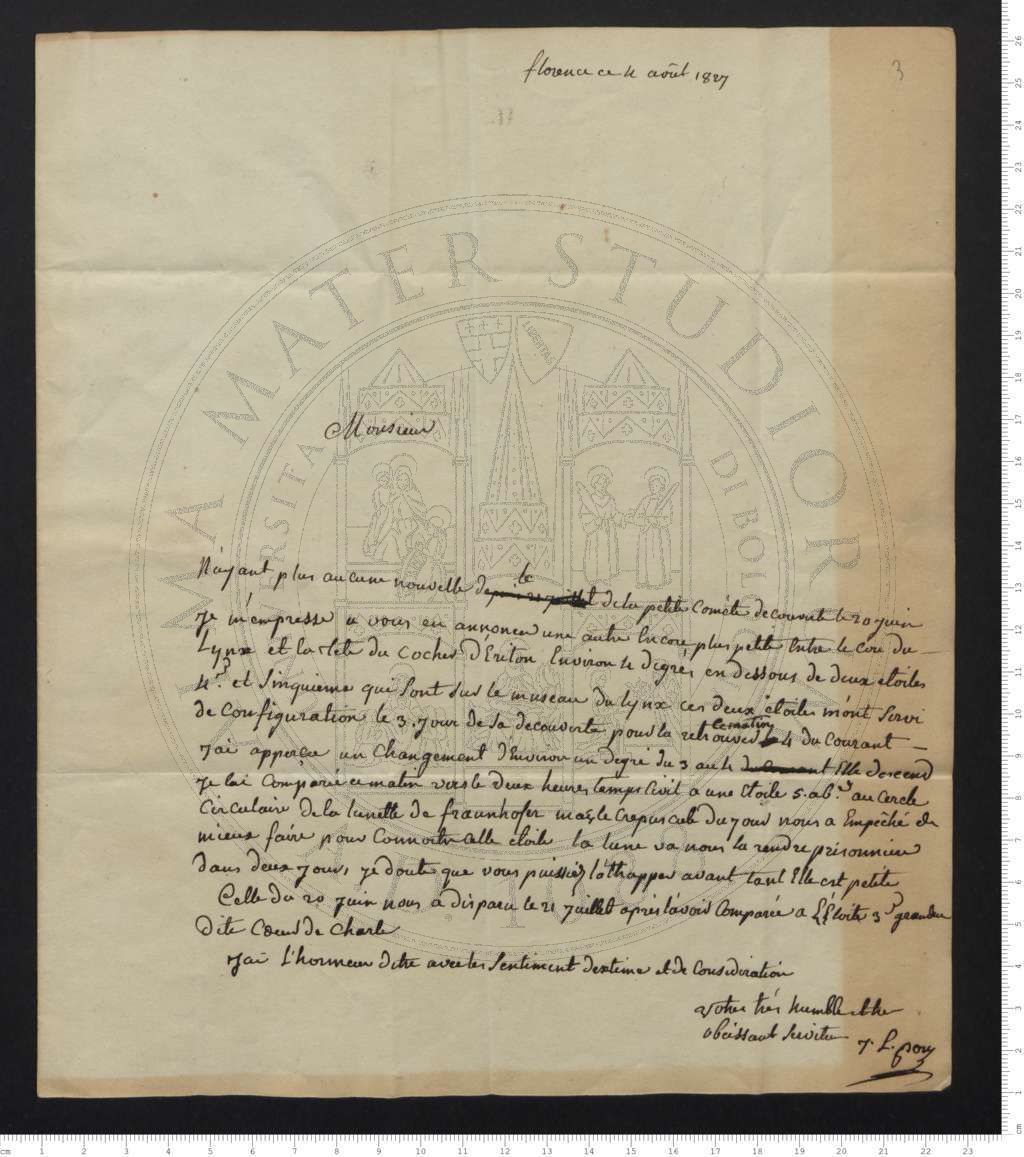 florence ce 4 août 1827
3
Monsieur
N'ayant plus aucune nouvelle de la petite Cométe decouverte le 20 juin
Je m'empresse a vous en annoncer une autre Encore plus petite Entre le cou du
Lynx et la Tete du Cocher d'Eriton Environ 4 degrés en dessous de deux étoiles
4.e et Sinquieme qui sont sur le museau du Lynx ces deux étoiles m'ont servi
de Configuration le 3. jour de sa decouverte pour la retrouver ce matin 4 du Courant
J'ai apperçu un Changement d'Environ un degré du 3 au 4 Elle descend
Je lai Comparée ce matin vers le deux heures temps Civil a une Etoile 5.a 6.e au Cercle
Circulaire de la lunette de fraunhofer mais le Crepuscule du jour nous a Empêché de
mieux faire pour Connoitre celle étoile la lune va nous la rendre prisonniere
dans deux jours, je doute que vous puissiez l'atthapper avant tant Elle est petite
Celle du 20 Juin nous a disparu le 21 juillet aprés l'avoir Comparée a L'Etoile 3.e grandeur
Dite Cœur de Charle
J'ai L'honneur d'etre avec les Sentiment d'estime et de Consideration
Votre trés humble et tre
obeissant Serviteur J. L. pons
ALMA MATER STUDIORUM
LIBERTAS